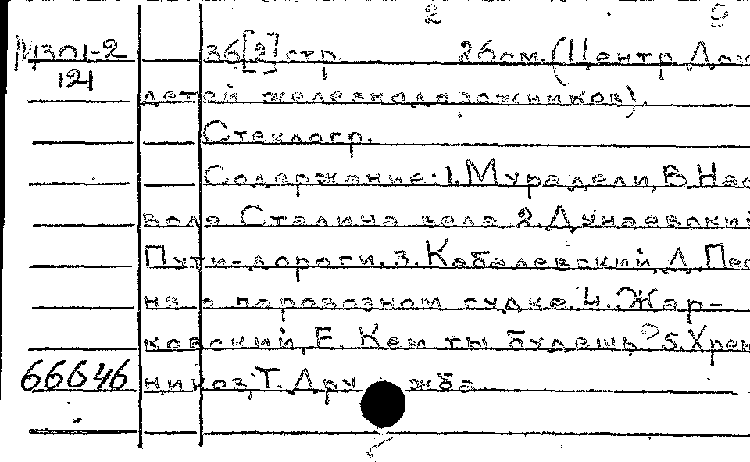 М1301-2 36[2] стр. 26 см. (Центр. Дом
121
детей железнодорожников).
Стеклогр.
Содержание: 1. Мурадели, В. Нас
воля Сталина вела 2. Дунаевский
Пути-дороги. 3. Кабалевский, Д. Пес
ня о паровозном гудке. 4. Жар-
ковский, Е. Кем ты будешь? 5. Хрен
66646 ников, Т. Дружба